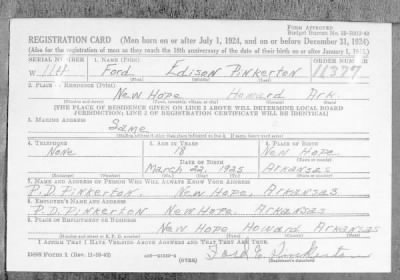 Form Approved
REGISTRATION CARD (Men born on or after July 1, 1924, and on or before December 31, 1924)
(Also for the registration of men as they reach the 18th anniversary of the date of their birth on or after January 1, 1925.)
SERIAL NUMBER 1. NAME (Print) ORDER NUMBER
W 114 Ford Edison Pinkerton 11377
(First) (Middle) (Last)
2. PLACE OF RESIDENCE (Print)
New Hope Howard Ark.
(Number and street) (Town, township, village, or city) (County) (State)
[THE PLACE OF RESIDENCE GIVEN ON LINE 2 ABOVE WILL DETERMINE LOCAL BOARD
JURISDICTION; LINE 2 OF REGISTRATION CERTIFICATE WILL BE IDENTICAL]
3. MAILING ADDRESS
Same
4. TELEPHONE 5. AGE IN YEARS 6. PLACE OF BIRTH
None 18 New Hope
DATE OF BIRTH
March 22, 1925 Arkansas
7. NAME AND ADDRESS OF PERSON WHO WILL ALWAYS KNOW YOUR ADDRESS
P. D. Pinkerton, New Hope, Arkansas
8. EMPLOYER'S NAME AND ADDRESS
P. D. Pinkerton New Hope, Arkansas
9. PLACE OF EMPLOYMENT OR BUSINESS
New Hope Howard Arkansas
I AFFIRM THAT I HAVE VERIFIED ABOVE ANSWERS AND THAT THEY ARE TRUE.
DSS Form 1 (Rev. 11-16-42) (OVER) Ford E. Pinkerton